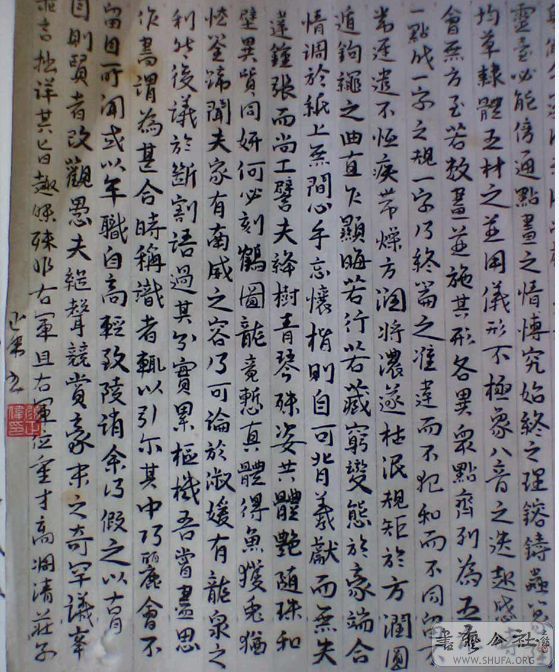 靈台必能傍通點畫之情博究始終之理鎔鑄蟲
均草隸體五材之並用儀形不極象八音之迭起感
會無方至若數畫並施其形各異眾點齊列為互
一點成一字之規一字乃終篇之准違而不犯和而不同
常遲遣不恆疾帶燥方潤將濃遂枯泯規矩於方圓
遁鉤繩之曲直乍顯晦若行若藏窮變態於豪端合
情調於紙上無間心手忘懷楷則自可背羲獻而無失
違鍾張而尚工譬夫絳樹青琴殊姿共體艷隨珠和
璧異質同妍何必刻鶴圖龍竟慙真體得魚獲兔猶
恡筌蹄聞夫家有南威之容乃可論於淑媛有龍泉之
利然後議於斷割語過其分實累樞機吾嘗盡思
作書謂為甚合時稱識者輒以引示其中巧麗會不
留目所聞或以年職自高輕致陵誚余乃假之以古
目則賢者改觀愚夫繼聲競賞豪末之奇罕議峯
詳其旨趣殊非右軍且右軍位重才高調清莊子
書藝公社
WWW.SHUFA.ORG